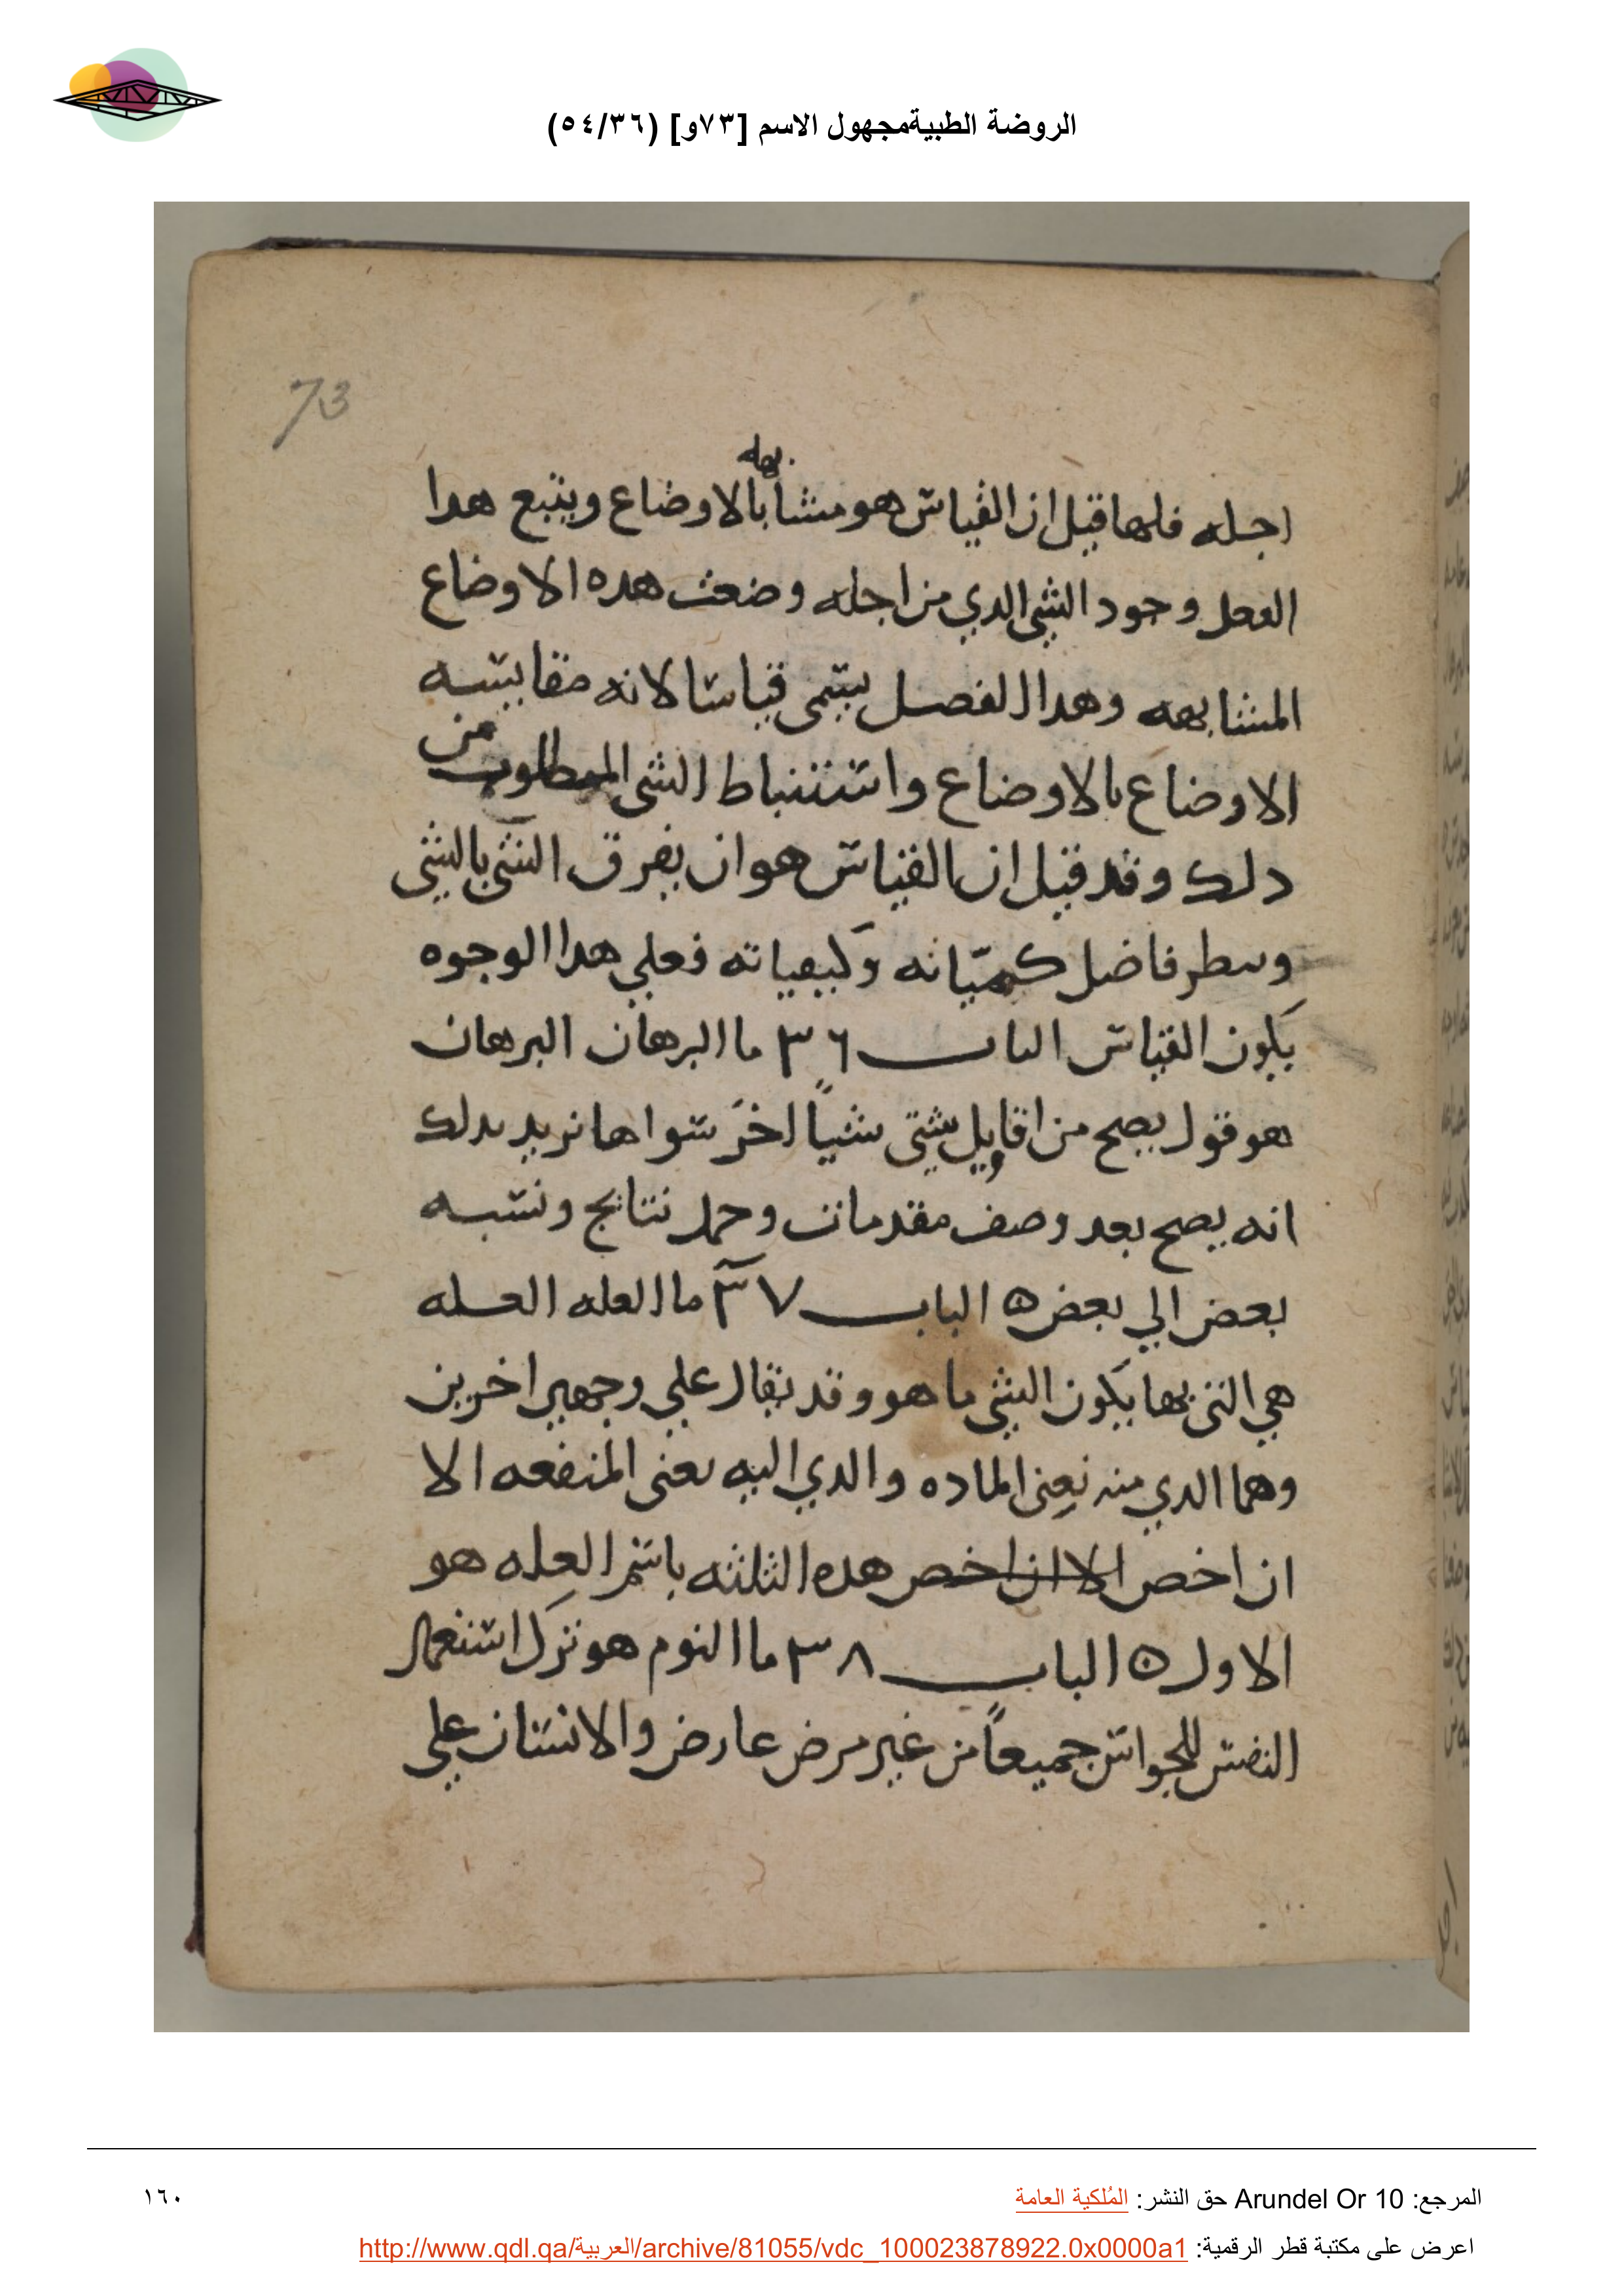 الروضة الطبيةمجهول الاسم [٧٣و] (٥٤/٣٦)
73
اجله فلهدا قيل ان القياس هو مشابهه بالاوضاع ويتبع هدا
الفعل وجود الشي الدي من اجله وضعت هده الاوضاع
المشابهه وهدا الفصل يسمى قياسا لانه مقايسه
الاوضاع بالاوضاع واستنباط الشى المطلوب من
دلك وقد قيل ان القياس هو ان يفرق الشي بالشي
وسطر فاضل كمياته وكيفياته فعلي هدا الوجوه
يكون القياس الباب ٣٦ ما البرهان البرهان
هو قول يصح من اقاويل شتى شياً اخر سواها نريد بدلك
انه يصح بعد وصف مقدمات وحمل نتايج ونسبه
بعض الي بعض ٥ الباب ٣٧ ما العله العله
هي التي بها يكون الشي ما هو وقد تقال علي وجهين اخرين
وهما الدي منه نعنى الماده والدي اليه نعنى المنفعه الا
ان اخص الا ان اخص هده الثلثه باسم العله هو
الاول ٥ الباب ٣٨ ما النوم هو ترك استعمال
النفس للحواس جميعاً من غير مرض عارض والانسان علي
المرجع: Arundel Or 10 حق النشر: المُلكية العامة
١٦٠
اعرض على مكتبة قطر الرقمية: http://www.qdl.qa/العربية/archive/81055/vdc_100023878922.0x0000a1